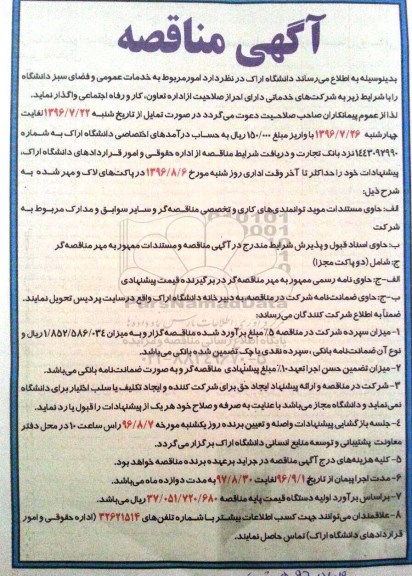 آگهی مناقصه
بدینوسیله به اطلاع می‌رساند دانشگاه اراک در نظر دارد امور مربوط به خدمات عمومی و فضای سبز دانشگاه
را با شرایط زیر به شرکت‌های خدماتی دارای احراز صلاحیت از اداره تعاون، کار و رفاه اجتماعی واگذار نماید.
لذا از عموم پیمانکاران صاحب صلاحیت دعوت می‌گردد در صورت تمایل از تاریخ شنبه ۱۳۹۶/۷/۲۲ لغایت
چهارشنبه ۱۳۹۶/۷/۲۶ با واریز مبلغ ۱۵۰/۰۰۰ ریال به حساب درآمدهای اختصاصی دانشگاه اراک به شماره
۱۴۴۳۰۹۲۹۹۰ نزد بانک تجارت و دریافت شرایط مناقصه از اداره حقوقی و امور قراردادهای دانشگاه اراک،
پیشنهادات خود را حداکثر تا آخر وقت اداری روز شنبه مورخ ۱۳۹۶/۸/۶ در پاکت‌های لاک و مهر شده به
شرح ذیل:
الف: حاوی مستندات موید توانمندی‌های کاری و تخصصی مناقصه‌گر و سایر سوابق و مدارک مربوط به
شرکت
ب: حاوی اسناد قبول و پذیرش شرایط مندرج در آگهی مناقصه و مستندات ممهور به مهر مناقصه‌گر
ج: شامل (دو پاکت مجزا)
الف-ج: حاوی نامه رسمی ممهور به مهر مناقصه‌گر در برگیرنده قیمت پیشنهادی
ب-ج: حاوی ضمانت‌نامه شرکت در مناقصه، به دبیرخانه دانشگاه اراک واقع در سایت پردیس تحویل نمایند.
ضمناً به اطلاع شرکت کنندگان می‌رساند:
۱- میزان سپرده شرکت در مناقصه ۵٪ مبلغ برآورد شده مناقصه‌گزار و به میزان ۱/۸۵۲/۵۸۶/۰۳۴ ریال و
نوع آن ضمانت‌نامه بانکی، سپرده نقدی یا چک تضمین شده بانکی می‌باشد.
۲- میزان تضمین حسن اجرا تعهد ۱۰٪ مبلغ پیشنهادی مناقصه گر و به صورت ضمانت‌نامه بانکی می‌باشد.
۳- شرکت در مناقصه و ارائه پیشنهاد ایجاد حق برای شرکت کننده و ایجاد تکلیف یا سلب اختیار برای دانشگاه
نمی‌نماید و دانشگاه مجاز می‌باشد با عنایت به صرفه و صلاح خود هر یک از پیشنهادات را قبول یا رد نماید.
۴- جلسه بازگشایی پیشنهادات واصله و تعیین برنده روز یکشنبه مورخه ۹۶/۸/۷ راس ساعت ۱۰ در محل دفتر
معاونت پشتیبانی و توسعه منابع انسانی دانشگاه اراک برگزار می‌گردد.
۵- کلیه هزینه‌های درج آگهی مناقصه در جراید بر عهده برنده مناقصه خواهد بود.
۶- مدت اجرا پیمان از تاریخ ۹۶/۹/۱ لغایت ۹۷/۸/۳۰ به مدت دوازده ماه می‌باشد.
۷- براساس برآورد اولیه دستگاه قیمت پایه مناقصه ۳۷/۰۵۱/۷۲۰/۶۸۰ ریال می‌باشد.
۸- علاقمندان می‌توانند جهت کسب اطلاعات بیشتر با شماره تلفن‌های ۳۲۶۲۱۵۱۴ (اداره حقوقی و امور
قراردادهای دانشگاه اراک) تماس حاصل نمایند.